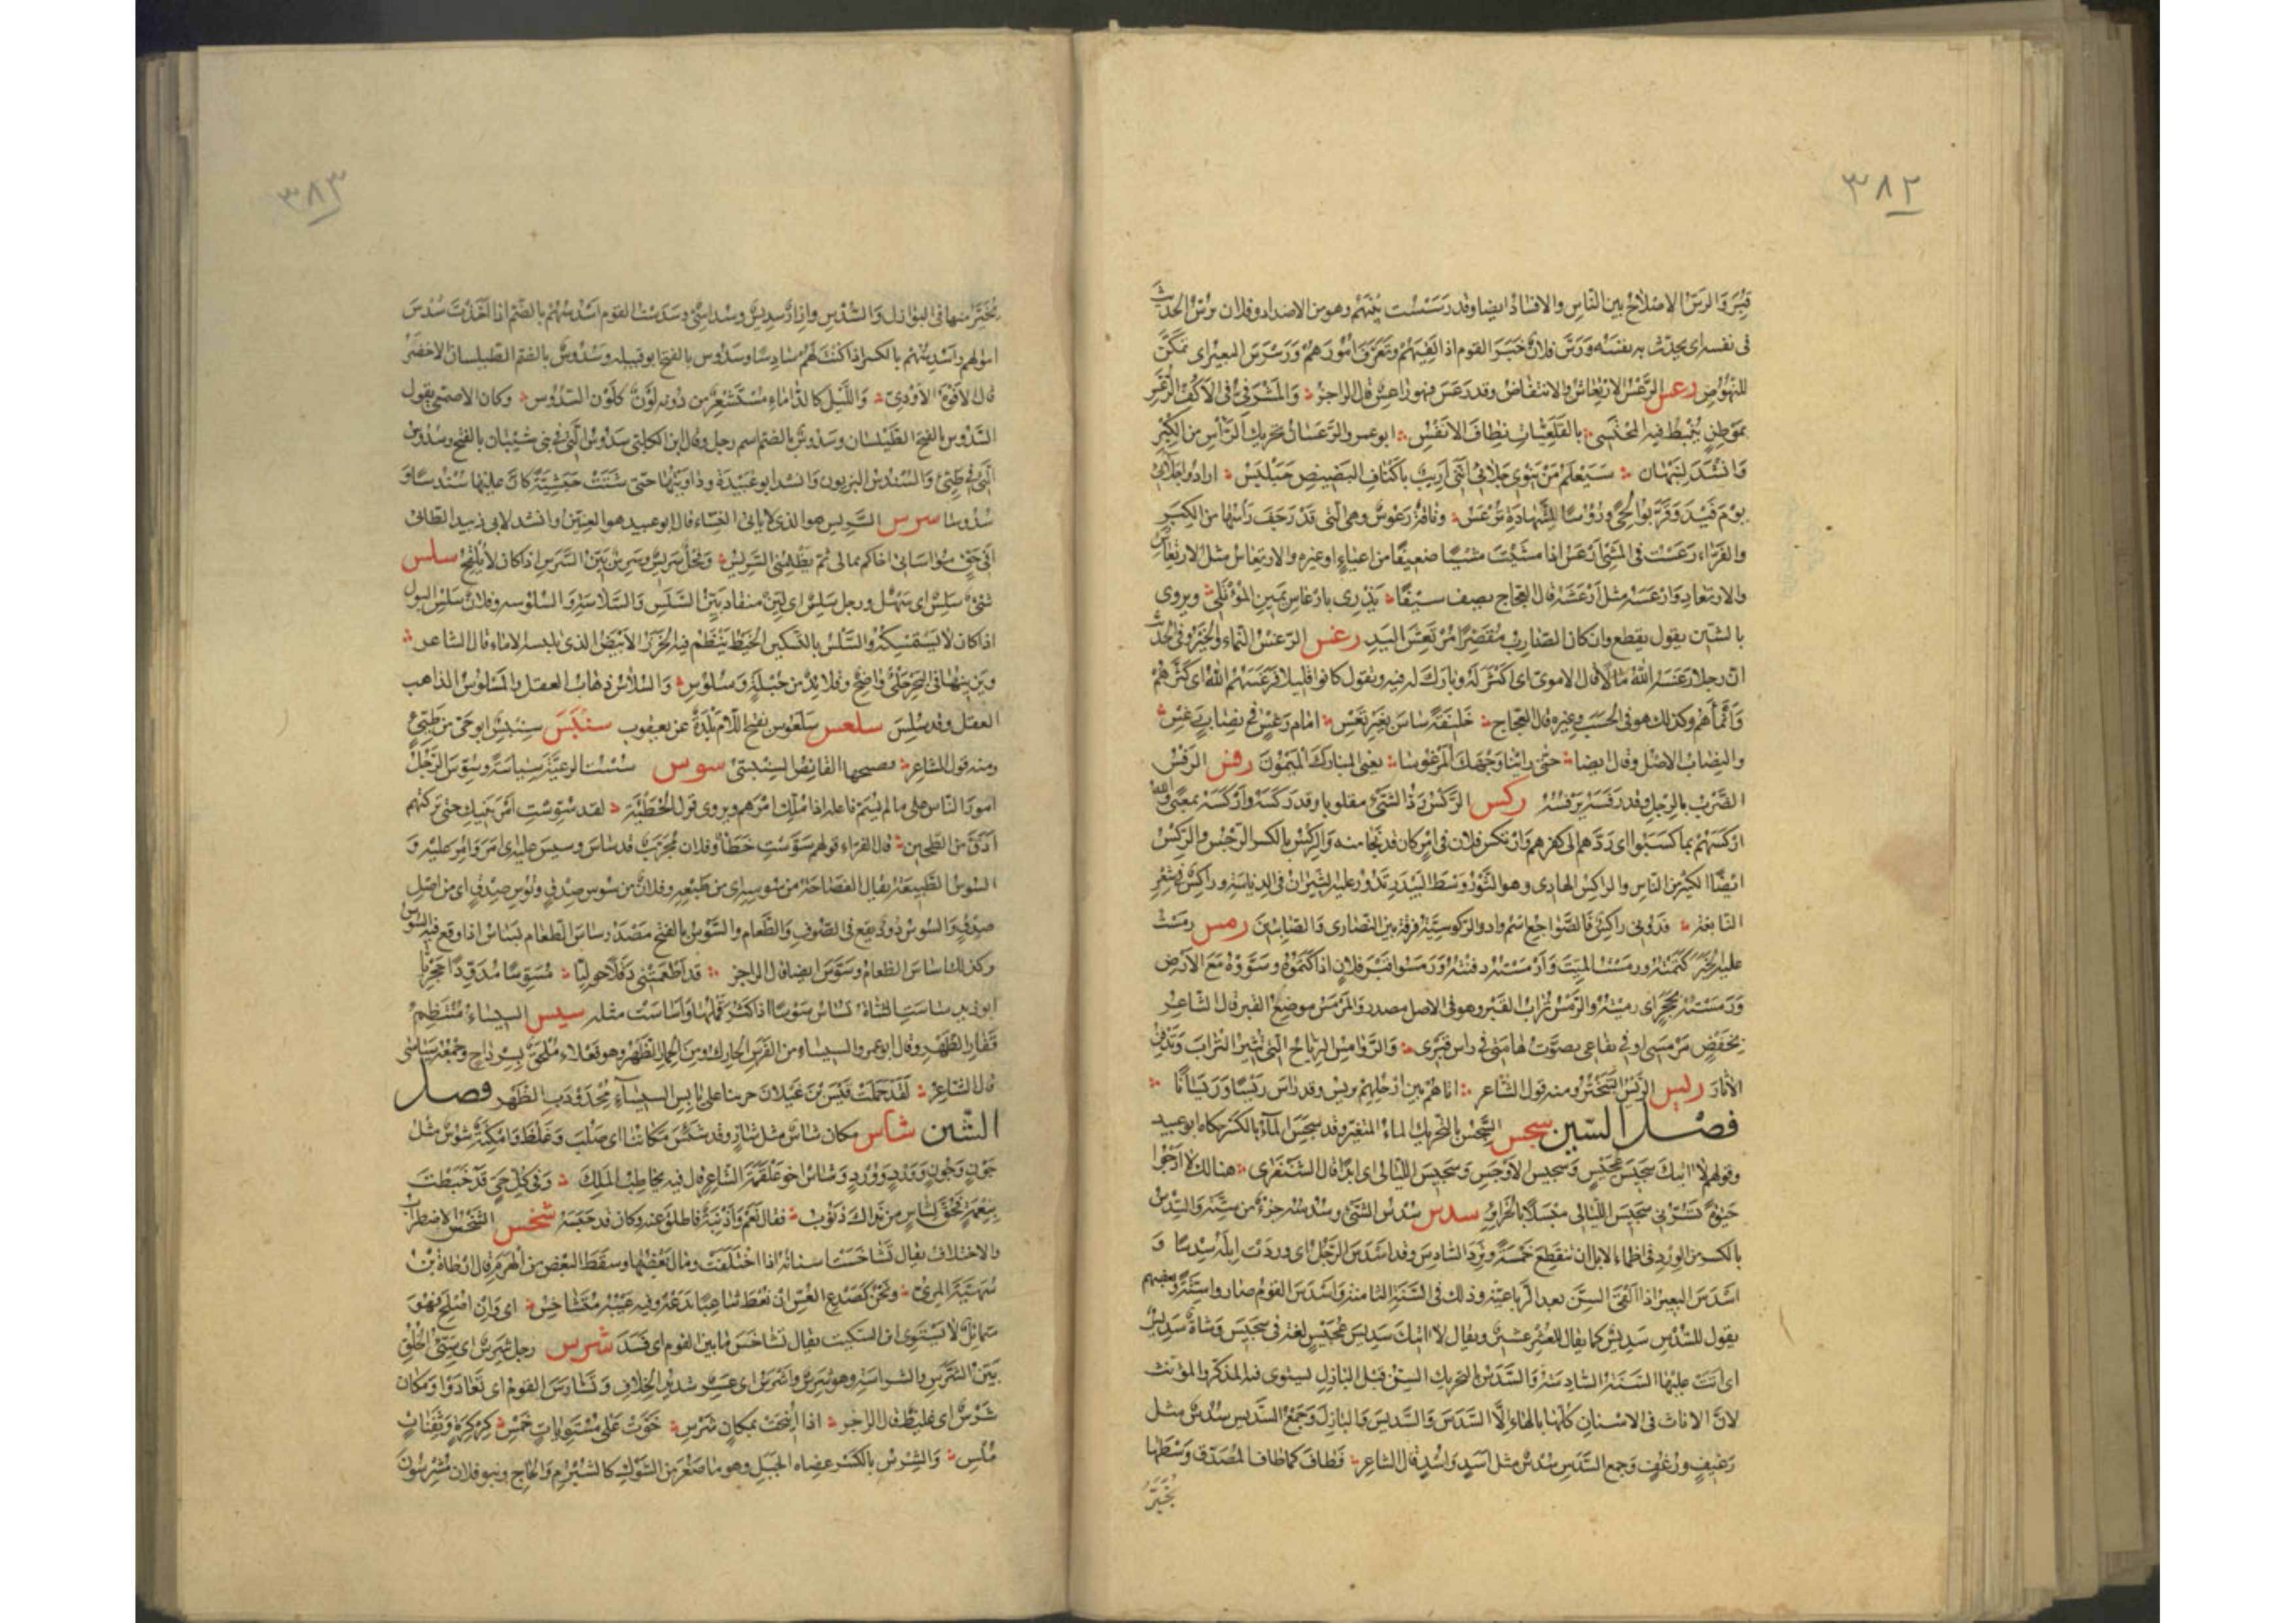 ٣٨٢
قبر والرس الاصلاح بين الناس والافساد ايضا وقد رسست بينهم وهو من الاضداد وفلان يرس الحديث
فى نفسه اى يحدث به نفسه ورس فلان خبر القوم اذا لقيهم وتعرف امورهم ورسرس البعير اى تمكن
للنهوض رعس الرعس الارتعاش والانتفاض وقد رعس فهو راعس قال الراجز والمشرفى فى الاكف الرعس
بموطن ينبط فيه المحتسى بالقلعيات نطاف الانفس ابو عمرو الرعسان تحريك الراس من الكبر
وانشد لنبهان سيعلم من ينوى جلائى اننى اريب باكناف النضيض حبلبس ارادوا جلائى
يوم فيد وقربوا لحى ورؤوسا للشهادة ترعس وناقة رعوس وهى التى قد رجف راسها من الكبر
والفراء رعست فى المشى ارعس اذا مشيت مشيا ضعيفا من اعياء او غيره والارتعاس مثل الارتعاش
والارتعاد وارعسه مثل ارعشه قال العجاج يصف سيفا يذرى بارعاس يمين المؤتلى ويروى
بالشين يقول يقطع وان كان الضارب مقصرا مرتعش اليد رغس الرغس النماء والخير وفى الحديث
ان رجلا رغسه الله مالا قال الاموى اى اكثر له وبارك له فيه ويقول كانوا قليلا فرغسهم الله اى كثرهم
وانماهم وكذلك هو فى الحسب وغيره قال العجاج خليفة ساس بغير تعس امام رغس فى نصاب رغس
والنصاب الاصل وقال ايضا حتى راينا وجهك المرغوسا يعنى المبارك الميمون رفس الرفس
الضرب بالرجل وقد رفسه يرفسه ركس الركس رد الشئ مقلوبا وقد ركسه واركسه بمعنى والله
اركسهم بما كسبوا اى ردهم الى كفرهم وارتكس فلان فى امر كان قد نجا منه والركس بالكسر الرجس والركس
ايضا الكثير من الناس والراكس الهادى وهو الثور وسط البيدر تدور عليه الثيران فى الدياسة وراكس فى شعر
النابغة فدونى راكس فالضواجع اسم واد والركوسية فرقة بين النصارى والصابئين رمس رمست
عليه الخبر كتمته ورمست الميت وارمسته دفنته ورمسوا قبر فلان اذا كتموه وسووه مع الارض
ورمسته بحجر اى رميته والرمس تراب القبر وهو فى الاصل مصدر والمرمس موضع القبر قال الشاعر
بخفض مرمسى او فى يفاع يصوت هامتى فى راس قبرى والروامس الرياح التى تثير التراب وتدفن
الاثار ريس الريس التبختر ومنه قول الشاعر اتاهم بين ارحلهم يريس وقد راس ريسا وريسانا
فصل السين سجس السجس بالتحريك الماء المتغير وقد سجس الماء بالكسر حكاه ابو عبيد
وقولهم لا اتيك سجيس عجيس وسجيس الاوجس وسجيس الليالى اى ابدا قال الشنفرى هنالك لا ارجو
حيوة تسرنى سجيس الليالى مبسلا بالجرائر سدس سدس الشئ وسدسه جزء من ستة والسدس
بالكسر من الورد فى اظماء الابل ان تنقطع خمسة وترد السادس وقد اسدس الرجل اى وردت ابله سدسا و
اسدس البعير اذا القى السن بعد الرباعية وذلك فى السنة الثامنة واسدس القوم صاروا ستة وبعضهم
يقول للسدس سديس كما يقال للعشر عشير ويقال لا اتيك سديس عجيس لغة فى سجيس وشاة سديس
اى اتت عليها السنة السادسة والسدس بالتحريك السن قبل البازل يستوى فيه المذكر والمؤنث
لان الاناث فى الاسنان كلها بالهاء الا السدس والسديس والبازل وجمع السديس سدس مثل
رغيف ورغف وجمع السدس سدس مثل اسد واسد قال الشاعر فطاف كما طاف المصدق وسطها
يخير
٣٨٣
يخير منها فى البوازل والسدس وازار سديس وسداسى وسدست القوم اسدسهم بالضم اذا اخذت سدس
اموالهم واسدسهم بالكسر اذا كنت لهم سادسا وسدوس بالفتح ابو قبيله وسدوس بالضم الطيلسان الاخضر
قال الافوه الاودى والليل كالدأماء مستشعر من دونه لون كلون السدوس وكان الاصمعى يقول
السدوس بالفتح الطيلسان وسدوس بالضم اسم رجل وقال ابن الكلبى سدوس التى فى بنى شيبان بالفتح وسدوس
التى فى طيئ والسندس البزيون وانشد ابو عبيدة وداويتها حتى شتت حبشية كان عليها سندسا و
سدوسا سرس السريس هو الذى لا ياتى النساء قال ابو عبيد هو العنين وانشد لابى زبيد الطائى
افى حق مواساتى اخاكم بمالى ثم يظلمنى السريس وفحل سريس وسرس بين السرس اذا كان لا يلقح سلس
شئ سلس اى سهل ورجل سلس اى لين منقاد بين السلس والسلاسة والسلوسه وفلان سلس البول
اذا كان لا يستمسكه والسلس بالتسكين الخيط ينظم فيه الخرز الابيض الذى يلبسه الاماء قال الشاعر
ويزينها فى النحر حلى واضح وقلائد من حبلة وسلوس والسلاس ذهاب العقل والمسلوس الذاهب
العقل وقد سلس سلعس سلعوس بفتح اللام بلدة عن يعقوب سنبس سنبس ابو حى من طيئ
ومنه قول الشاعر فصبحها القانص السنبسى سوس سست الرعية سياسة وسوس الرجل
امور الناس على ما لم يسم فاعله اذا ملك امرهم ويروى قول الحطيئة لقد سوست امر بنيك حتى تركتهم
ادق من الطحين قال الفراء قولهم سوست خطأ وفلان مجرب قد ساس وسيس عليه اى امر وامر عليه و
السوس الطبيعة يقال الفصاحة من سوسه اى من طبعه وفلان من سوس صدق وتوس صدق اى من اصل
صدق والسوس دود يقع فى الصوف والطعام والسوس بالفتح مصدر ساس الطعام يساس اذا وقع فيه السوس
وكذلك اساس الطعام وسوس ايضا قال الراجز قد اطعمتنى دقلا حوليا مسوسا مدودا حجريا
ابو زيد ساست الشاة تساس سوسا اذا كثر قملها واساست مثله سيس السيساء منتظم
فقار الظهر وقال ابو عمرو السيساء من الفرس الحارك ومن الحمار الظهر وهو فعلاء ملحق بسرداح وجمعه سياسى
قال الشاعر لقد حملت قيس بن عيلان حربنا على يابس السيساء محدودب الظهر فصل
الشين شاس مكان شأس مثل شأز وقد شئس مكاننا اى صلب وغلظ وامكنة شوس مثل
جون وجون وورد وورد وشاس اخو علقمة الشاعر قال فيه يخاطب الملك وفى كل حى قد خبطت
بنعمة فحق لشاس من نداك ذنوب فقال نعم واذنبة فاطلق عنه وكان قد حبسه شخس الشخس الاضطراب
والاختلاف يقال تشاخست اسنانه اذا اختلفت ومال بعضها وسقط البعض من الهرم قال ارطاة بن
سهية المرى ونحن كصدع العس ان يعط شاعبا يدعه وفيه عيبه متشاخس اى وان اصلح فهو
متمايل لا يستوى ابن السكيت يقال تشاخس ما بين القوم اى فسد شرس رجل شرس اى سيئ الخلق
بين الشرس والشراسة وهو شرس واشرس اى عسر شديد الخلاف وتشارس القوم اى تعادوا ومكان
شرس اى غليظ قال الراجز اذا انيخت بمكان شرس خوت على مستويات خمس كركرة وثفنات
ملس والشرس بالكسر عضاه الجبل وهو ما صغر من الشوك كالشبرم والحاج وبنو فلان مشرسون